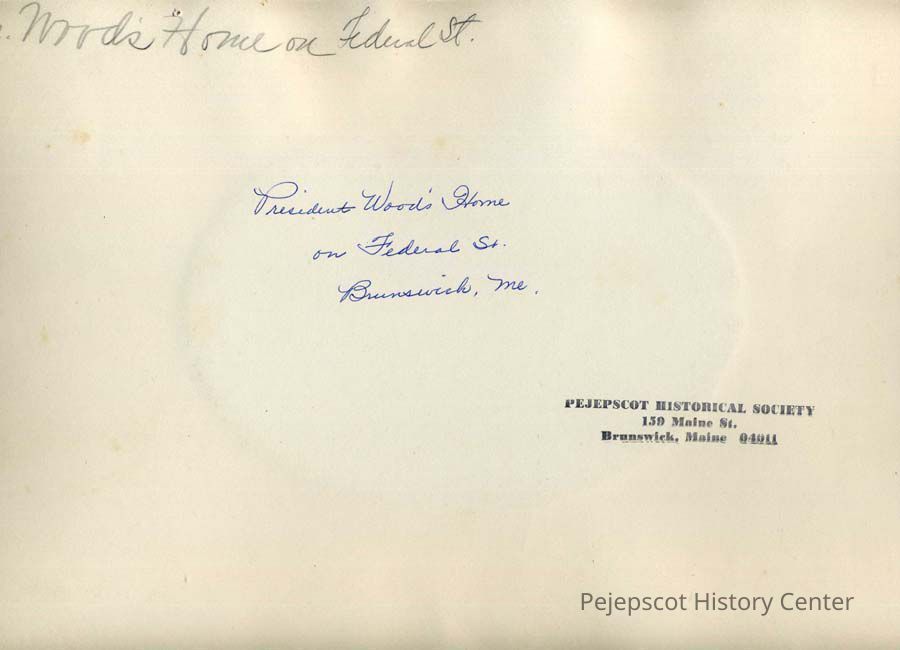 . Wood's Home on Federal St.
President Wood's Home
on Federal St.
Brunswick, Me.
PEJEPSCOT HISTORICAL SOCIETY
159 Maine St.
Brunswick, Maine 04011
Pejepscot History Center